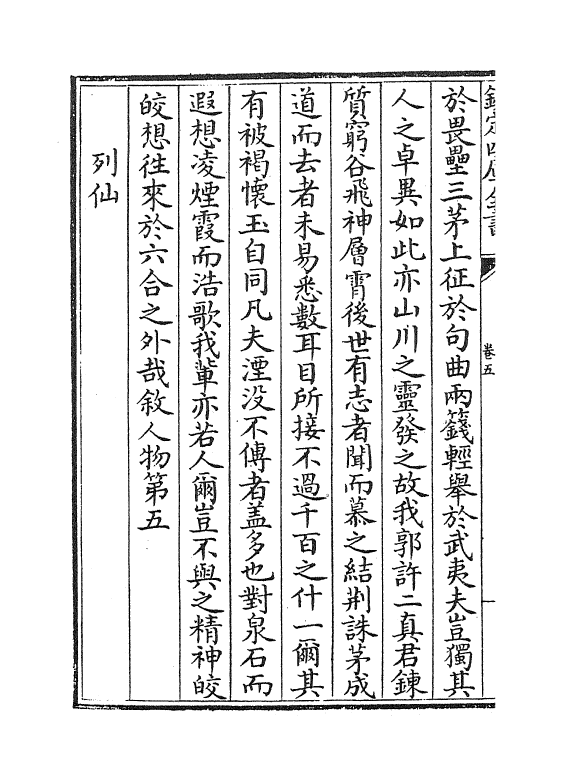 欽定四庫全書
卷五
一
於畏壘三茅上征於句曲兩籛輕舉於武夷夫豈獨其
人之卓異如此亦山川之靈發之故我郭許二真君鍊
質窮谷飛神層霄後世有志者聞而慕之結荆誅茅成
道而去者未易悉數耳目所接不過千百之什一爾其
有被褐懷玉自同凡夫湮没不傳者盖多也對泉石而
遐想凌煙霞而浩歌我輩亦若人爾豈不與之精神皎
皎想徃來於六合之外哉敘人物第五
列仙